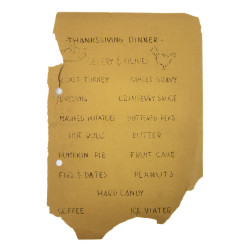 -THANKSGIVING DINNER-
CELERY & OLIVES
ROAST TURKEY GIBLET GRAVY
DRESSING CRANBERRY SAUCE
MASHED POTATOES BUTTERED PEAS
HOT ROLLS BUTTER
PUMPKIN PIE FRUIT CAKE
FIGS & DATES PEANUTS
HARD CANDY
COFFEE ICE WATER